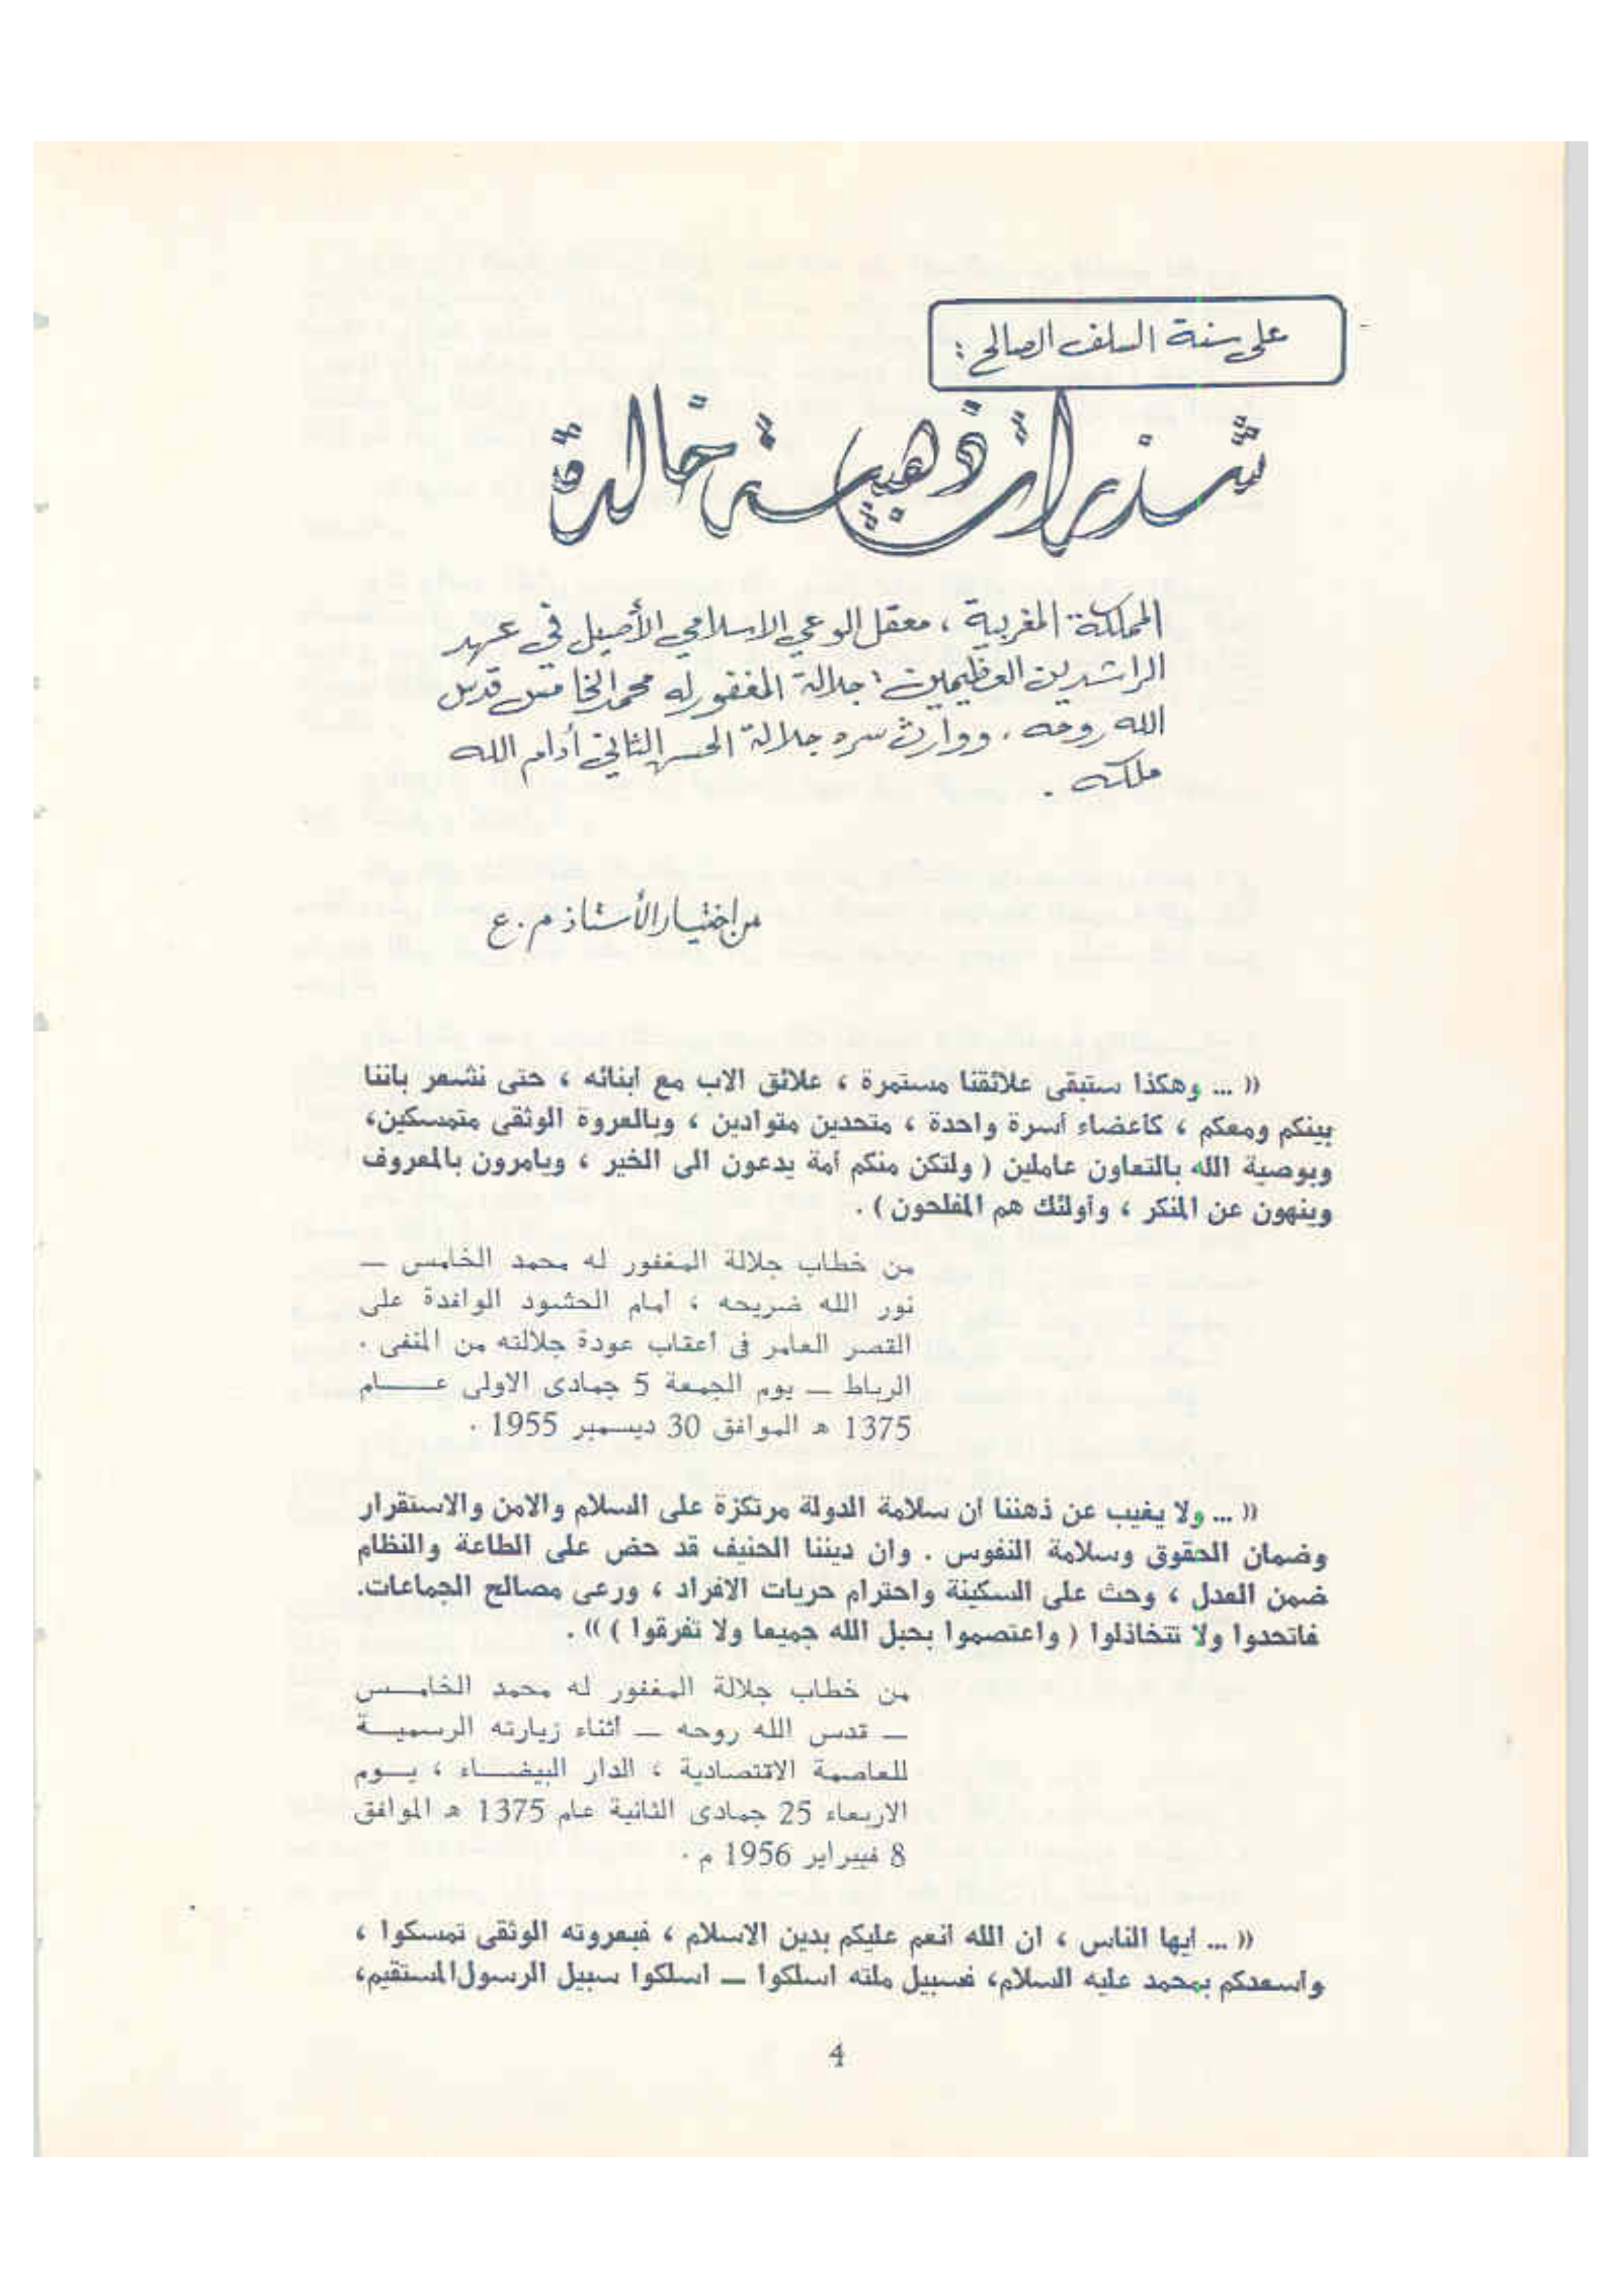 على سنة السلف الصالح :
شذرات ذهبية خالدة
المملكة المغربية ، معقل الوعي الاسلامي الأصيل في عهد
الراشدين العظيمين : جلالة المغفور له محمد الخامس قدس
الله روحه ، ووارث سره جلالة الحسن الثاني أدام الله
ملكه .
من اختيار الأستاذ م . ع
(( ... وهكذا ستبقى علائقنا مستمرة ، علائق الاب مع ابنائه ، حتى نشعر باننا
بينكم ومعكم ، كأعضاء أسرة واحدة ، متحدين متوادين ، وبالعروة الوثقى متمسكين،
وبوصية الله بالتعاون عاملين ( ولتكن منكم أمة يدعون الى الخير ، ويامرون بالمعروف
وينهون عن المنكر ، وأولئك هم المفلحون ) .
من خطاب جلالة المغفور له محمد الخامس —
نور الله ضريحه ، أمام الحشود الوافدة على
القصر العامر في أعقاب عودة جلالته من المنفى .
الرباط — يوم الجمعة 5 جمادى الاولى عــــام
1375 هـ الموافق 30 ديسمبر 1955 .
(( ... ولا يغيب عن ذهننا أن سلامة الدولة مرتكزة على السلام والامن والاستقرار
وضمان الحقوق وسلامة النفوس . وان ديننا الحنيف قد حض على الطاعة والنظام
ضمن العدل ، وحث على السكينة واحترام حريات الافراد ، ورعى مصالح الجماعات.
فاتحدوا ولا تتخاذلوا ( واعتصموا بحبل الله جميعا ولا تفرقوا ) )) .
من خطاب جلالة المغفور له محمد الخامــس
— قدس الله روحه — أثناء زيارته الرسميــة
للعاصمة الاقتصادية ، الدار البيضــاء ، يــوم
الاربعاء 25 جمادى الثانية عام 1375 هـ الموافق
8 فبيراير 1956 م .
(( ... ايها الناس ، ان الله انعم عليكم بدين الاسلام ، فبعروته الوثقى تمسكوا ،
واسعدكم بمحمد عليه السلام، فسبيل ملته اسلكوا — اسلكوا سبيل الرسول المستقيم،
4